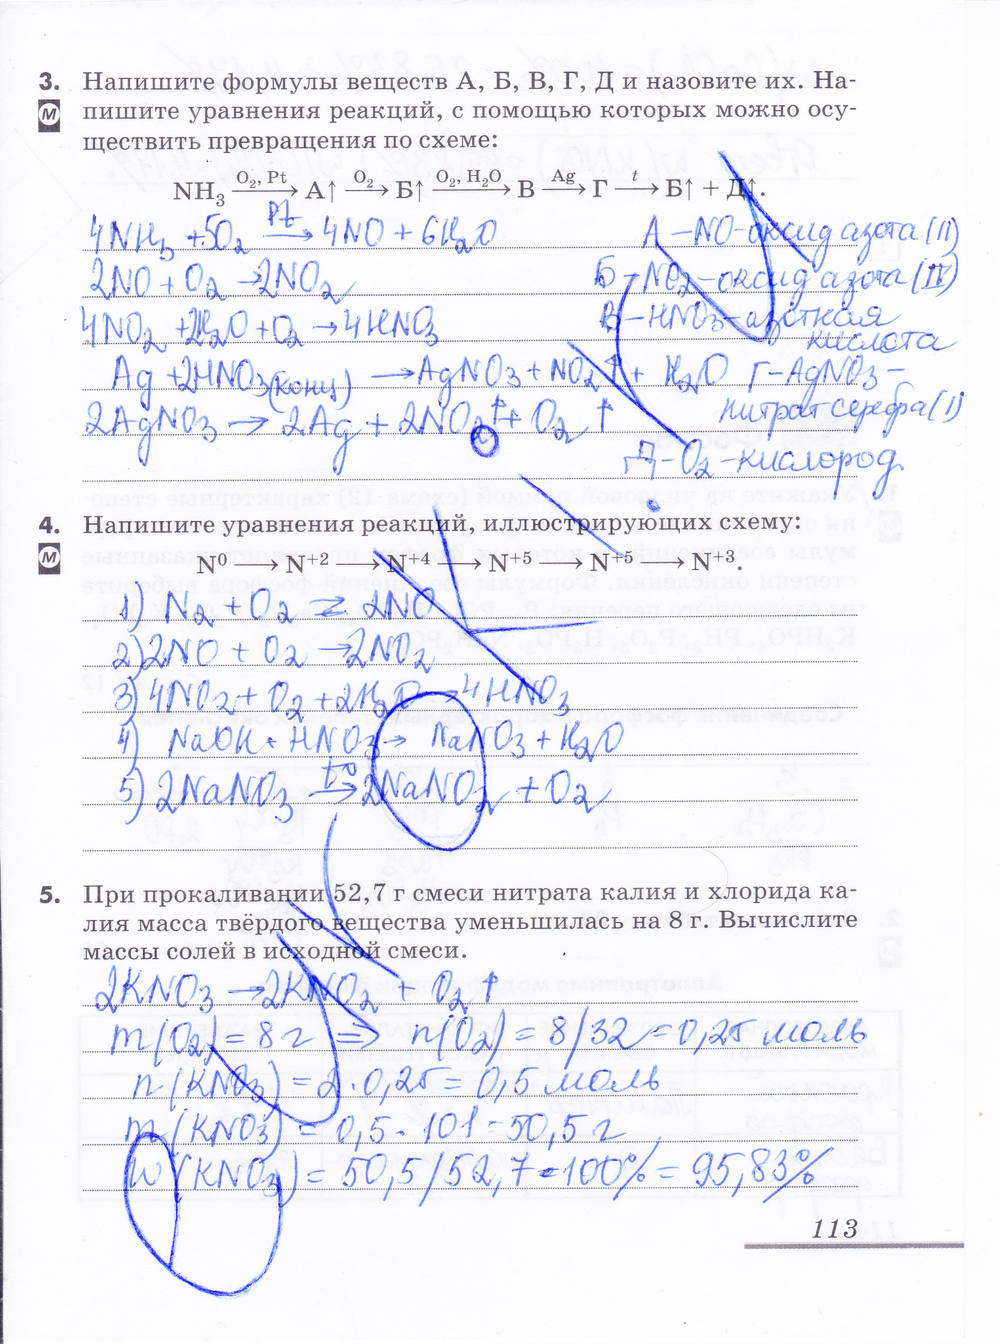 3. Напишите формулы веществ А, Б, В, Г, Д и назовите их. На-
М пишите уравнения реакций, с помощью которых можно осу-
ществить превращения по схеме:
NH₃ —O₂, Pt→ А↑ —O₂→ Б↑ —O₂, H₂O→ В —Ag→ Г —t→ Б↑ + Д↑.
4NH₃ + 5O₂ —Pt→ 4NO + 6H₂O А – NO – оксид азота (II)
2NO + O₂ → 2NO₂ Б – NO₂ – оксид азота (IV)
4NO₂ + 2H₂O + O₂ → 4HNO₃ В – HNO₃ – азотная
кислота
Ag + 2HNO₃(конц) → AgNO₃ + NO₂↑ + H₂O Г – AgNO₃ –
нитрат серебра (I)
2AgNO₃ → 2Ag + 2NO₂↑ + O₂↑
Д – O₂ – кислород.
4. Напишите уравнения реакций, иллюстрирующих схему:
М N⁰ → N⁺² → N⁺⁴ → N⁺⁵ → N⁺⁵ → N⁺³.
1) N₂ + O₂ ⇄ 2NO
2) 2NO + O₂ → 2NO₂
3) 4NO₂ + O₂ + 2H₂O → 4HNO₃
4) NaOH + HNO₃ → NaNO₃ + H₂O
5) 2NaNO₃ —t°→ 2NaNO₂ + O₂
5. При прокаливании 52,7 г смеси нитрата калия и хлорида ка-
лия масса твёрдого вещества уменьшилась на 8 г. Вычислите
массы солей в исходной смеси.
2KNO₃ → 2KNO₂ + O₂↑
m(O₂) = 8 г => n(O₂) = 8/32 = 0,25 моль
n(KNO₃) = 2 · 0,25 = 0,5 моль
m(KNO₃) = 0,5 · 101 = 50,5 г
w(KNO₃) = 50,5/52,7 · 100% = 95,83%
113